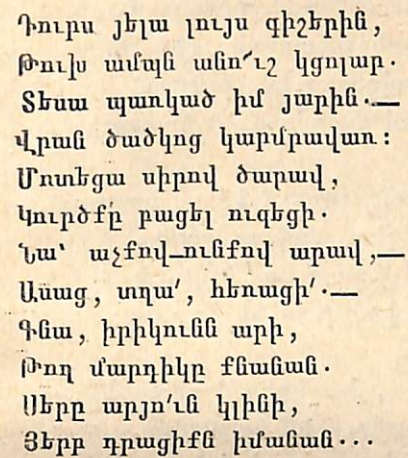 Դուրս յելա լույս գիշերին,
Թուխ ամպն անո՜ւշ կցոլար.
Տեսա պառկած իմ յարին.—
Վրան ծածկոց կարմրավառ:
Մոտեցա սիրով ծարավ,
Կուրծքը բացել ուզեցի.
Նա՝ աչքով-ունքով արավ,—
Ասաց, տղա՛, հեռացի՛.—
Գնա, իրիկունն արի,
Թող մարդիկը քնանան.
Սերը արյո՛ւն կլինի,
Յերբ դրացիքն իմանան...